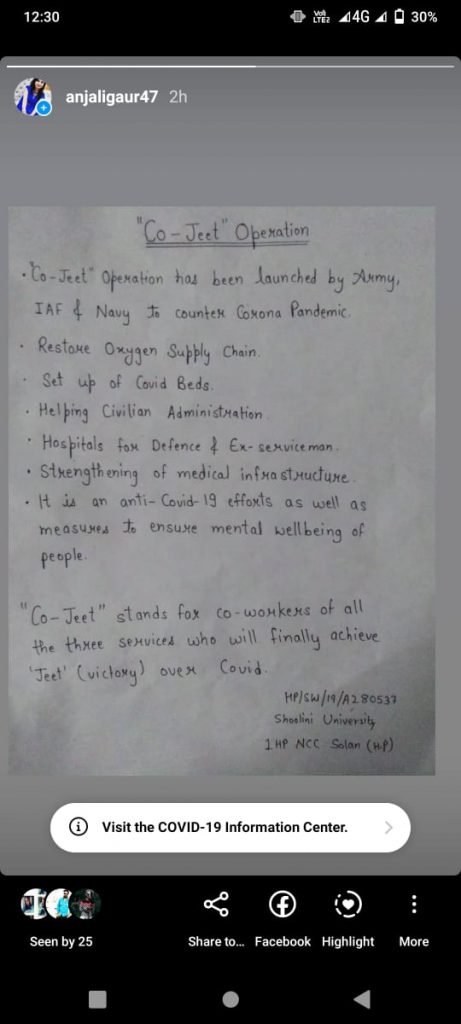 12:30
Vo)) LTE2 4G 30%
anjaligaur47 2h
"Co-Jeet" Operation
• "Co-Jeet" Operation has been launched by Army,
IAF & Navy to counter Corona Pandemic.
• Restore Oxygen Supply Chain.
• Set up of Covid Beds.
• Helping Civilian Administration
• Hospitals for Defence & Ex-serviceman.
• Strengthening of medical infrastructure.
• It is an anti-Covid-19 efforts as well as
measures to ensure mental wellbeing of
people.
"Co-Jeet" stands for co-workers of all
the three services who will finally achieve
'Jeet' (victory) over Covid.
HP/SW/19/A280537
Shoolini University
1 HP NCC Solan (HP)
Visit the COVID-19 Information Center.
Seen by 25
Share to... Facebook Highlight More